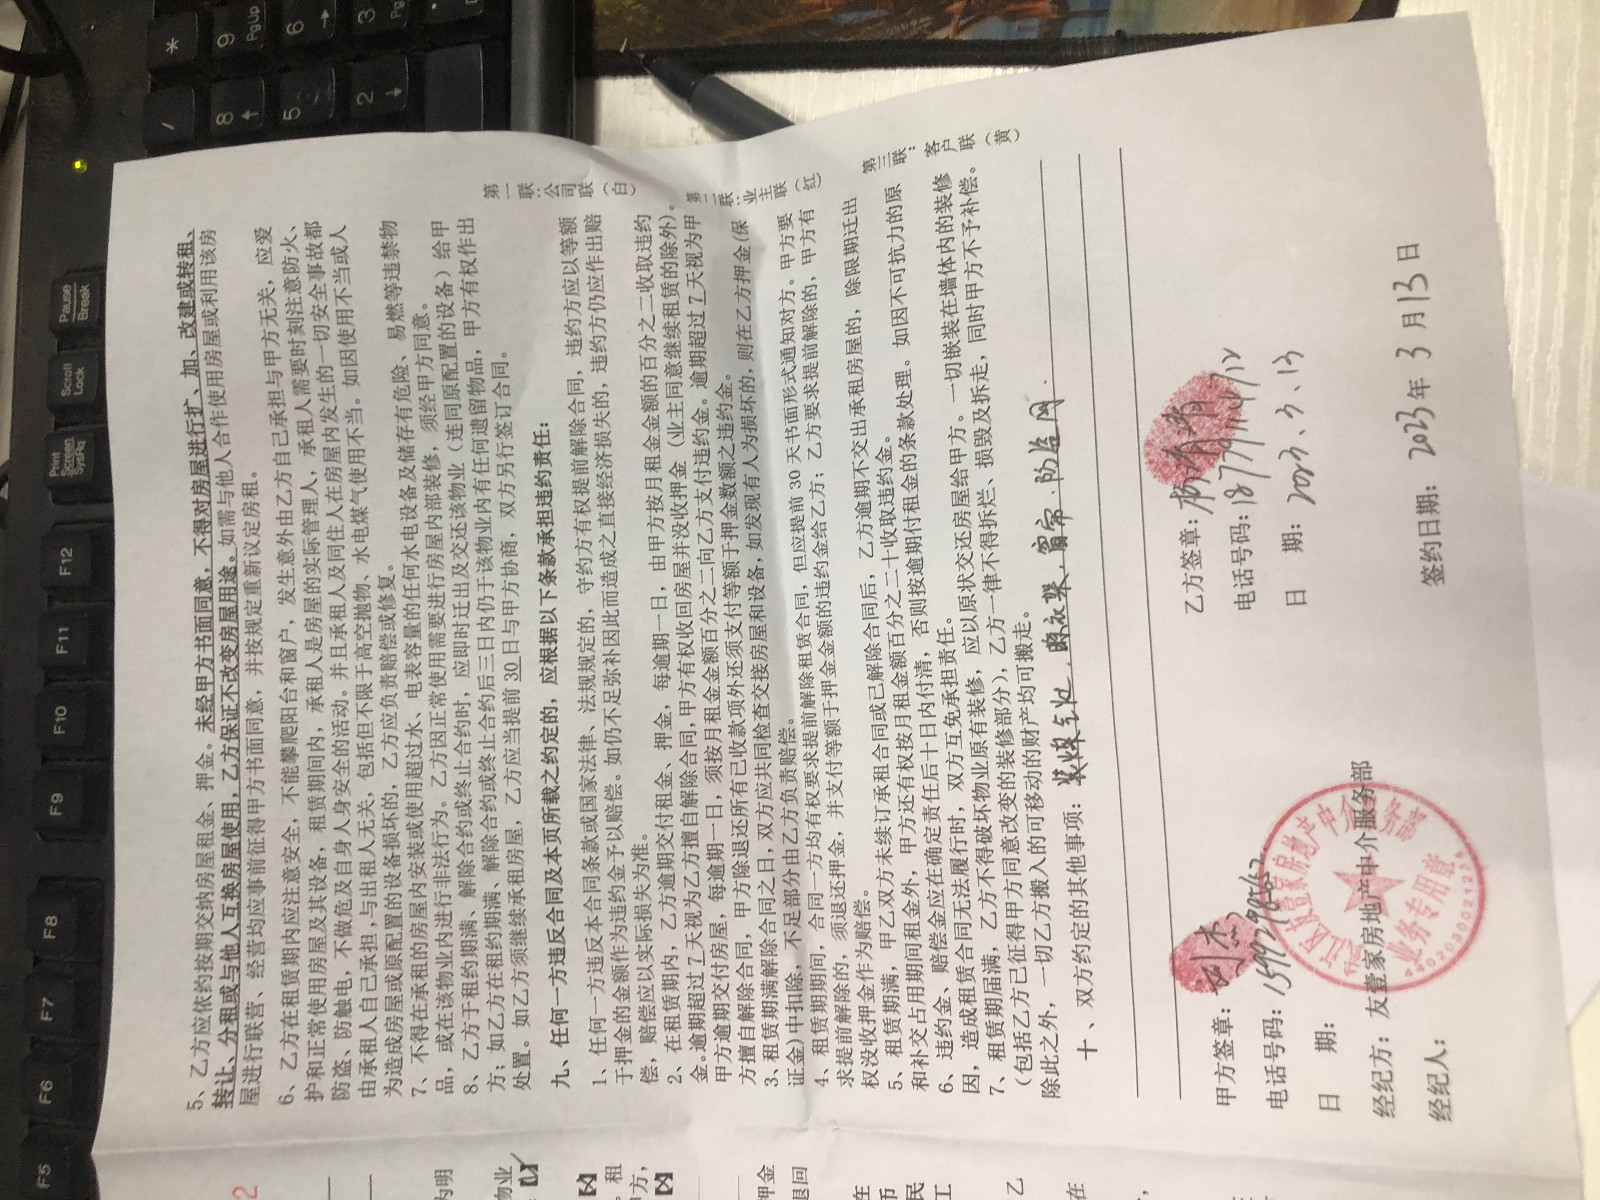 5、乙方应依约按期交纳房屋租金、押金。未经甲方书面同意，不得对房屋进行扩、加、改建或转租、
转让、分租或与他人互换房屋使用，乙方保证不改变房屋用途。如需与他人合作使用房屋或利用该房
屋进行联营、经营均应事前征得甲方书面同意，并按规定重新议定房租。
6、乙方在租赁期内应注意安全，不能攀爬阳台和窗户，发生意外由乙方自己承担与甲方无关，应爱
护和正常使用房屋及其设备，租赁期间内，承租人是房屋的实际管理人，承租人需要时刻注意防火、
防盗、防触电，不做危及自身人身安全的活动。并且承租人及同住人在房屋内发生的一切安全事故都
由承租人自己承担，与出租人无关，包括但不限于高空抛物、水电煤气使用不当。如因使用不当或人
为造成房屋或原配置的设备损坏的，乙方应负责赔偿或修复。
7、不得在承租的房屋内安装或使用超过水、电表容量的任何水电设备及储存有危险、易燃等违禁物
品，或在该物业内进行非法行为。乙方因正常使用需要进行房屋内部装修，须经甲方同意。
8、乙方于租约期满、解除合约或终止合约时，应即时迁出及交还该物业（连同原配置的设备）给甲
方；如乙方在租约期满、解除合约或终止合约后三日内仍于该物业内有任何遗留物品，甲方有权作出
处置。如乙方须继续承租房屋，乙方应当提前30日与甲方协商，双方另行签订合同。
九、任何一方违反合同及本页所载之约定的，应根据以下条款承担违约责任：
1、任何一方违反本合同条款或国家法律、法规规定的，守约方有权提前解除合同，违约方应以等额
于押金的金额作为违约金予以赔偿。如仍不足弥补因此而造成之直接经济损失的，违约方仍应作出赔
偿，赔偿应以实际损失为准。
2、在租赁期内，乙方逾期交付租金、押金，每逾期一日，由甲方按月租金金额的百分之二收取违约
金。逾期超过7天视为乙方擅自解除合同，甲方有权收回房屋并没收押金（业主同意继续租赁的除外）。
甲方逾期交付房屋，每逾期一日，须按月租金金额百分之二向乙方支付违约金。逾期超过7天视为甲
方擅自解除合同，甲方除退还所有已收款项外还须支付等额于押金数额之违约金。
3、租赁期满解除合同之日，双方应共同检查交接房屋和设备，如发现有人为损坏的，则在乙方押金(保
证金)中扣除，不足部分由乙方负责赔偿。
4、租赁期期间，合同一方均有权要求提前解除租赁合同，但应提前30天书面形式通知对方。甲方要
求提前解除的，须退还押金，并支付等额于押金金额的违约金给乙方；乙方要求提前解除的，甲方有
权没收押金作为赔偿。
5、租赁期满，甲乙双方未续订承租合同或已解除合同后，乙方逾期不交出承租房屋的，除限期迁出
和补交占用期间租金外，甲方还有权按月租金额百分之二十收取违约金。
6、违约金、赔偿金应在确定责任后十日内付清，否则按逾期付租金的条款处理。如因不可抗力的原
因，造成租赁合同无法履行时，双方互免承担责任。
7、租赁期届满，乙方不得破坏物业原有装修，应以原状交还房屋给甲方。一切嵌装在墙体内的装修
(包括乙方已征得甲方同意改变的装修部分)，乙方一律不得拆烂、损毁及拆走，同时甲方不予补偿。
除此之外，一切乙方搬入的可移动的财产均可搬走。
十、双方约定的其他事项：装煤气灶，晾衣架，窗帘，防盗网．
第一联：公司联（白）
第二联：业主联（红）
第三联：客户联（黄）
甲方签章：刘杰
乙方签章：
电话号码：15992989862
电话号码：18779114712
日 期：
日 期：2023、3、13
经纪方：友壹家房地产中介服务部
签约日期：2023年3月13日
经纪人：
友壹家房地产中介服务部
业务专用章
F5
F6
F7
F8
F9
F10
F11
F12
Print Screen SysRq
Scroll Lock
Pause Break
/
*
8
9 PgUp
5
6
2
3